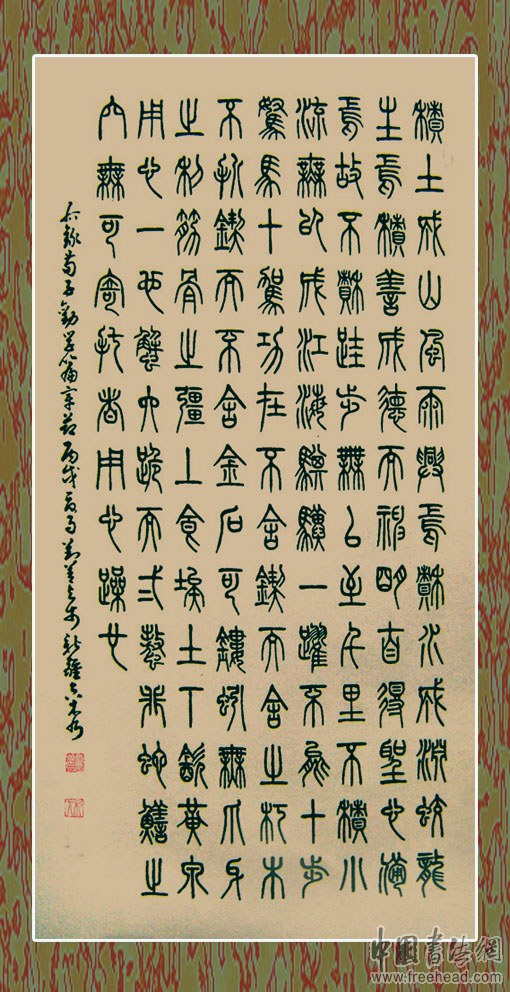 積土成山風雨興焉積水成淵蛟龍
生焉積善成德而神明自得聖心備
焉故不積跬步無以至千里不積小
流無以成江海騏驥一躍不能十步
駑馬十駕功在不舍鍥而舍之朽木
不折鍥而不舍金石可鏤蚓無爪牙
之利筋骨之彊上食埃土下飲黃泉
用心一也蟹六跪而二螯非蛇鱔之
穴無可寄託者用心躁也
右錄荀子勸學篇章節丙戌
中國書法網
www.freehead.com